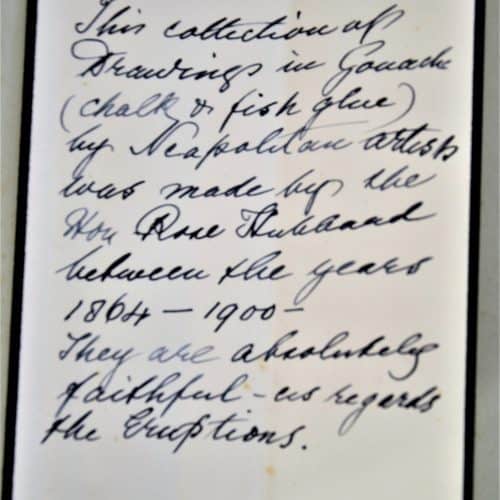 This collection of
Drawings in Gouache
(chalk & fish glue)
by Neapolitan artists
was made by the
Hon Rose Hubbard
between the years
1864 – 1900 –
They are absolutely
faithful – as regards
the Eruptions.